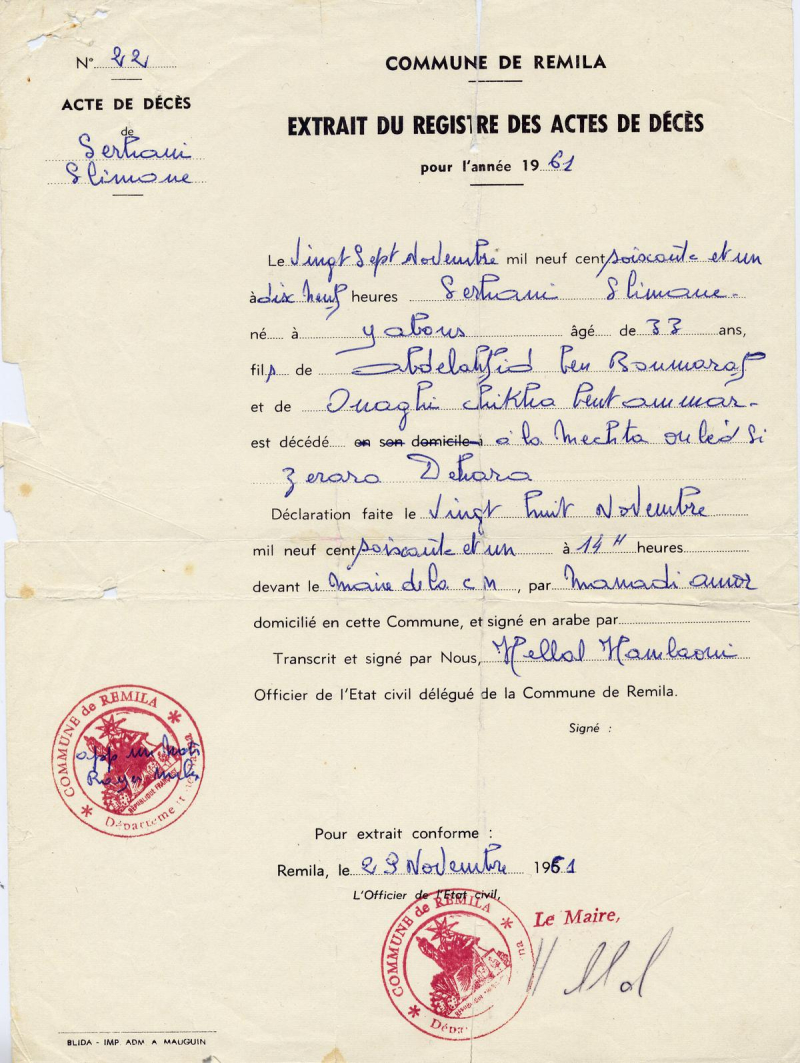 N° 22
ACTE DE DÉCÈS
de
Serhani
Slimane
COMMUNE DE REMILA
EXTRAIT DU REGISTRE DES ACTES DE DÉCÈS
pour l'année 1961
Le Vingt Sept Novembre mil neuf cent soixante et un
à dix neuf heures Serhani Slimane
né à Yabous âgé de 33 ans,
fils de Abdelahfid ben Boumaraf
et de Ouaghi Chikha bent ammar
est décédé en son domicile à à la Mechta ouled Si
Zerara Dehara
Déclaration faite le Vingt huit Novembre
mil neuf cent soixante et un à 14 H heures
devant le Maire de la c M, par Mamadi amor
domicilié en cette Commune, et signé en arabe par
Transcrit et signé par Nous, Hellal Hamlaoui
Officier de l'Etat civil délégué de la Commune de Remila.
Signé :
COMMUNE de REMILA
RÉPUBLIQUE FRANÇAISE
Département
Pour extrait conforme :
Remila, le 29 Novembre 1961
L'Officier de l'Etat civil,
Le Maire,
COMMUNE de REMILA
Hellal
BLIDA - IMP. ADM A. MAUGUIN